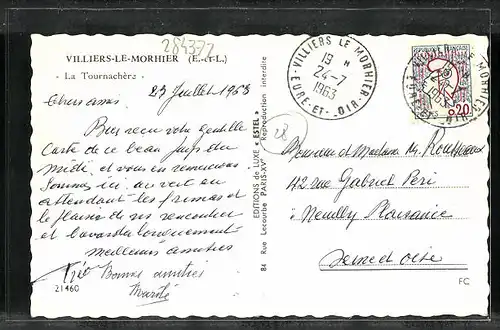 284377
VILLIERS-LE-MORHIER (E.-et-L.)
- La Tournachère -
23 Juillet 1963
Chers amis
Bien reçu votre gentille
Carte de ce beau pays du
Midi, et vous en remercions
Sommes ici, au vert en
attendant les frimas et
le plaisir de se rencontrer
et bavarder longuement
Meilleures amitiés
Bonnes amitiés
21460
EDITIONS de LUXE « ESTEL »
84 Rue Lecourbe PARIS-XVe
Reproduction interdire
VILLIERS LE MORHIER
19 H
24-7
1963
EURE-ET-LOIR
FRANÇAISE
0,20
Monsieur et Madame
42 rue Gabriel Péri
à Neuilly Plaisance
Seine et Oise
FC